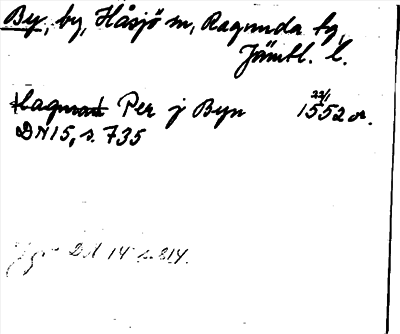 By, by, Håsjö sn, Ragunda tg,
Jämtl. l.
Per j Byn 22/1 1552 or.
DN15, s. 735
DN 14 s. 814.